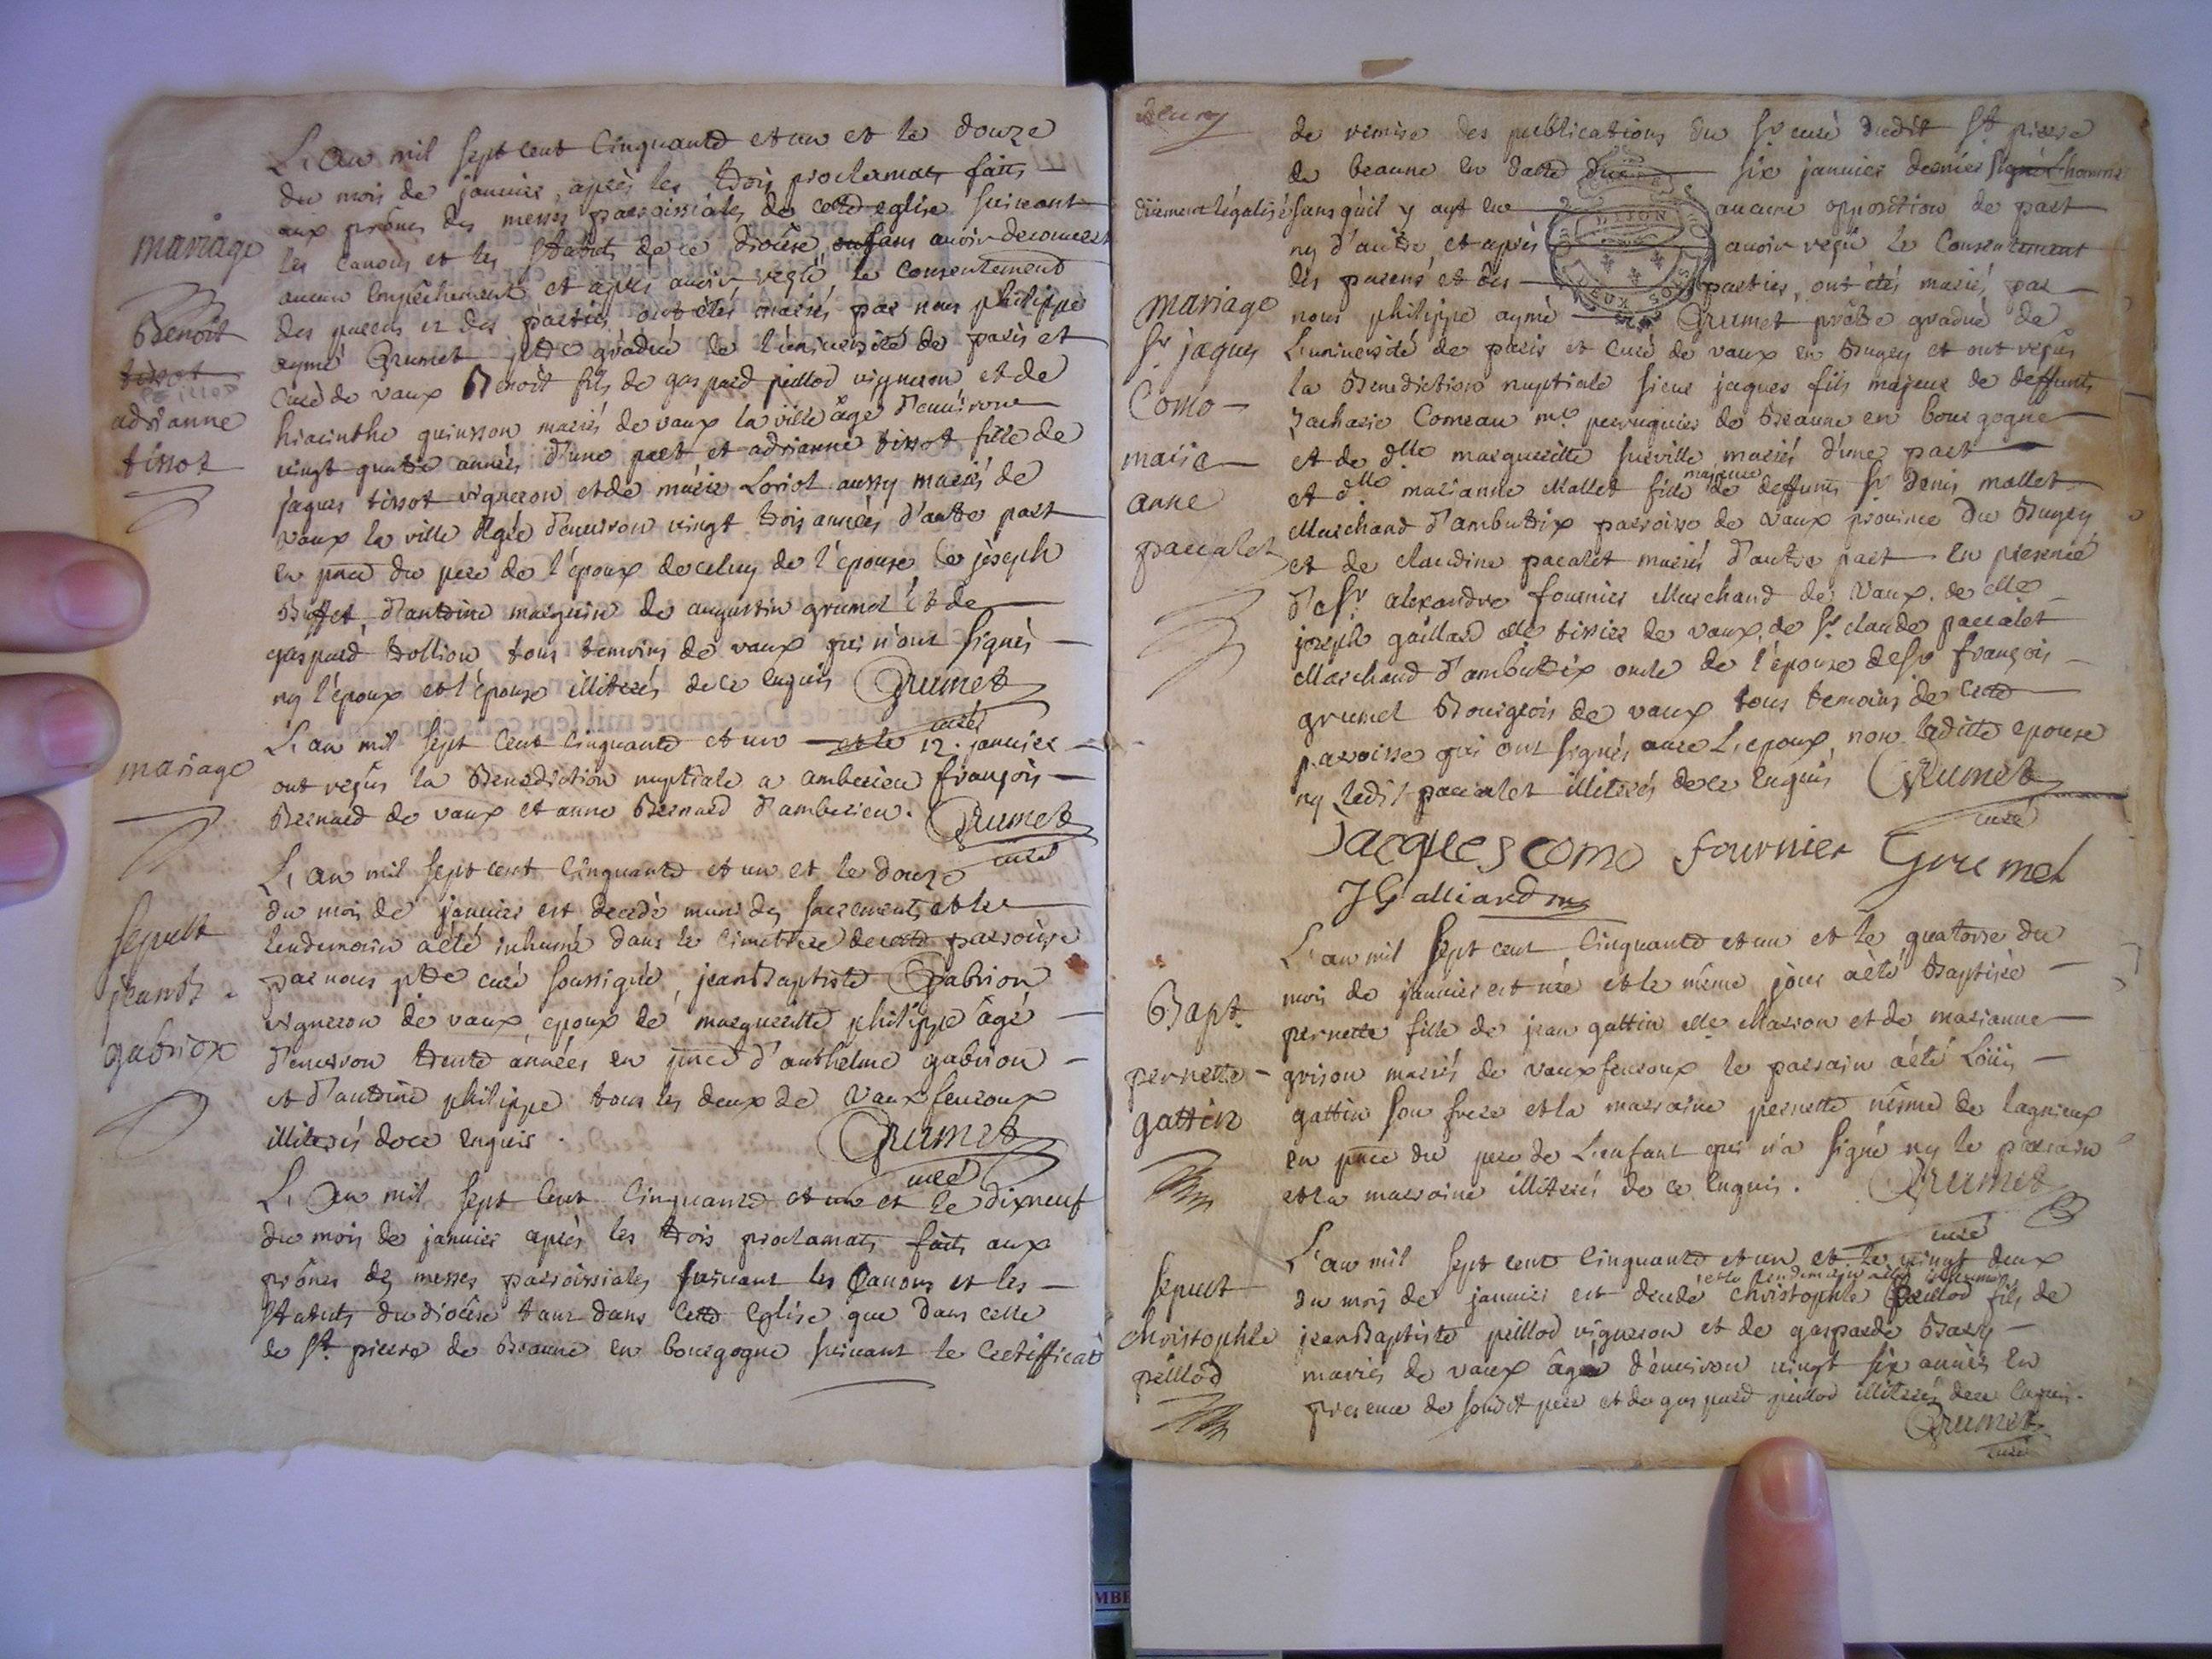 L'an mil sept cent cinquante et un et le douze
du mois de janvier, après les trois proclamats faits
aux prônes des messes parroissiales de cette eglise suivant
les canons et les statuts de ce diocèse sans avoir decouvert
aucun empêchement, et après avoir reçu le consentement
des parens et des parties, ont étés mariés par nous philippe
aymé Grumet ptre gradué de l'université de paris et
curé de vaux Benoit fils de gaspard peillod vigneron et de
hiacinthe quinson mariés de vaux la ville âgé d'environ
vingt quatre années d'une part et adrianne tissot fille de
jaques tissot vigneron et de marie Loriot aussy mariés de
vaux la ville âgée d'environ vingt trois années d'autre part
en pnce du pere de l'époux de celuy de l'épouse de joseph
Buffet, d'antoine marguin de augustin grumet et de
gaspard trollion tous temoins de vaux qui n'ont signés
ny l'époux et l'épouse illiterés de ce enquis Grumet
curé
mariage
Benoit
tissot
peillod
adrianne
tissot
L'an mil sept cent cinquante et un et le 12. janvier
ont reçus la Benediction nuptiale a amberieu françois
Bernard de vaux et anne Bernard d'amberieu. Grumet
curé
mariage
L'an mil sept cent cinquante et un et le douze
du mois de janvier est decedé muni des sacrements et le
lendemain a été inhumé dans le cimettiere de cette parroisse
par nous ptre curé soussigné, jean Baptiste Gabrion
vigneron de vaux epoux de margueritte philippe âgé
d'environ trente années en pnce d'anthelme gabrion
et d'antoine philippe tous les deux de vaux fevroux
illiterés de ce enquis. Grumet
curé
sepult
jean B.
gabrion
L'an mil sept cent cinquante et un et le dixneuf
du mois de janvier après les trois proclamats faits aux
prônes des messes parroissiales suivant les canons et les
statuts du diocèse tant dans cette eglise que dans celle
de St. pierre de Beaune en bourgogne suivant le certifficat
de remise des publications du sr curé dudit St pierre
de beaune en datte du six janvier dernier signé Lhomme
duement légalisé sans qu'il y ayt eu aucune opposition de part
ny d'autre, et après avoir reçu le consentement
des parens et des parties, ont étés mariés par
DIJON
nous philippe aymé Grumet prêtre gradué de
L'université de paris et curé de vaux en Bugey et ont reçus
la Benediction nuptiale sieur jaques fils majeur de deffunts
Zacharie Comeau me. perruquier de Beaune en bourgogne
et de dlle margueritte surville mariés d'une part
et dlle marianne Mallet fille majeure de deffunts sr Denis mallet
Marchand d'ambutrix parroisse de vaux province du Bugey
et de claudine pacalet mariés d'autre part en presence
de sr. alexandre fournier Marchand de vaux. de
joseph gaillard tissier de vaux, de sr claude paccalet
Marchand d'ambutrix oncle de l'épouse de sr françois
grumet Bourgeois de vaux tous temoins de cette
parroisse qui ont signés avec L'epoux, non laditte epouse
ny ledit paccalet illiterés de ce enquis Grumet
curé
mariage
sr jaques
Como
maria
anne
paccalet
Jacques como fournier Grumet
J Galliard
L'an mil sept cent cinquante et un et le quatorse du
mois de janvier est née et le même jour a été Baptisée
pernette fille de jean gattin Masson et de marianne
grison mariés de vaux fevroux le parrain a été Loüis
gattin son frere et la marraine pernette nême de lagnieux
en pnce du pere de L'enfant qui n'a signé ny le parrain
et la marraine illiterés de ce enquis. Grumet
curé
Bapt.
pernette
gattin
L'an mil sept cent cinquante et un et le vingt deux
et le lendemain a été inhumé
du mois de janvier est decedé christophle peillod fils de
jean Baptiste peillod vigneron et de gasparde Barry
mariés de vaux âgé d'environ vingt six années en
presence de sondit pere et de gaspard peillod illiterés de ce enquis.
Grumet
curé
sepult
christophle
peillod